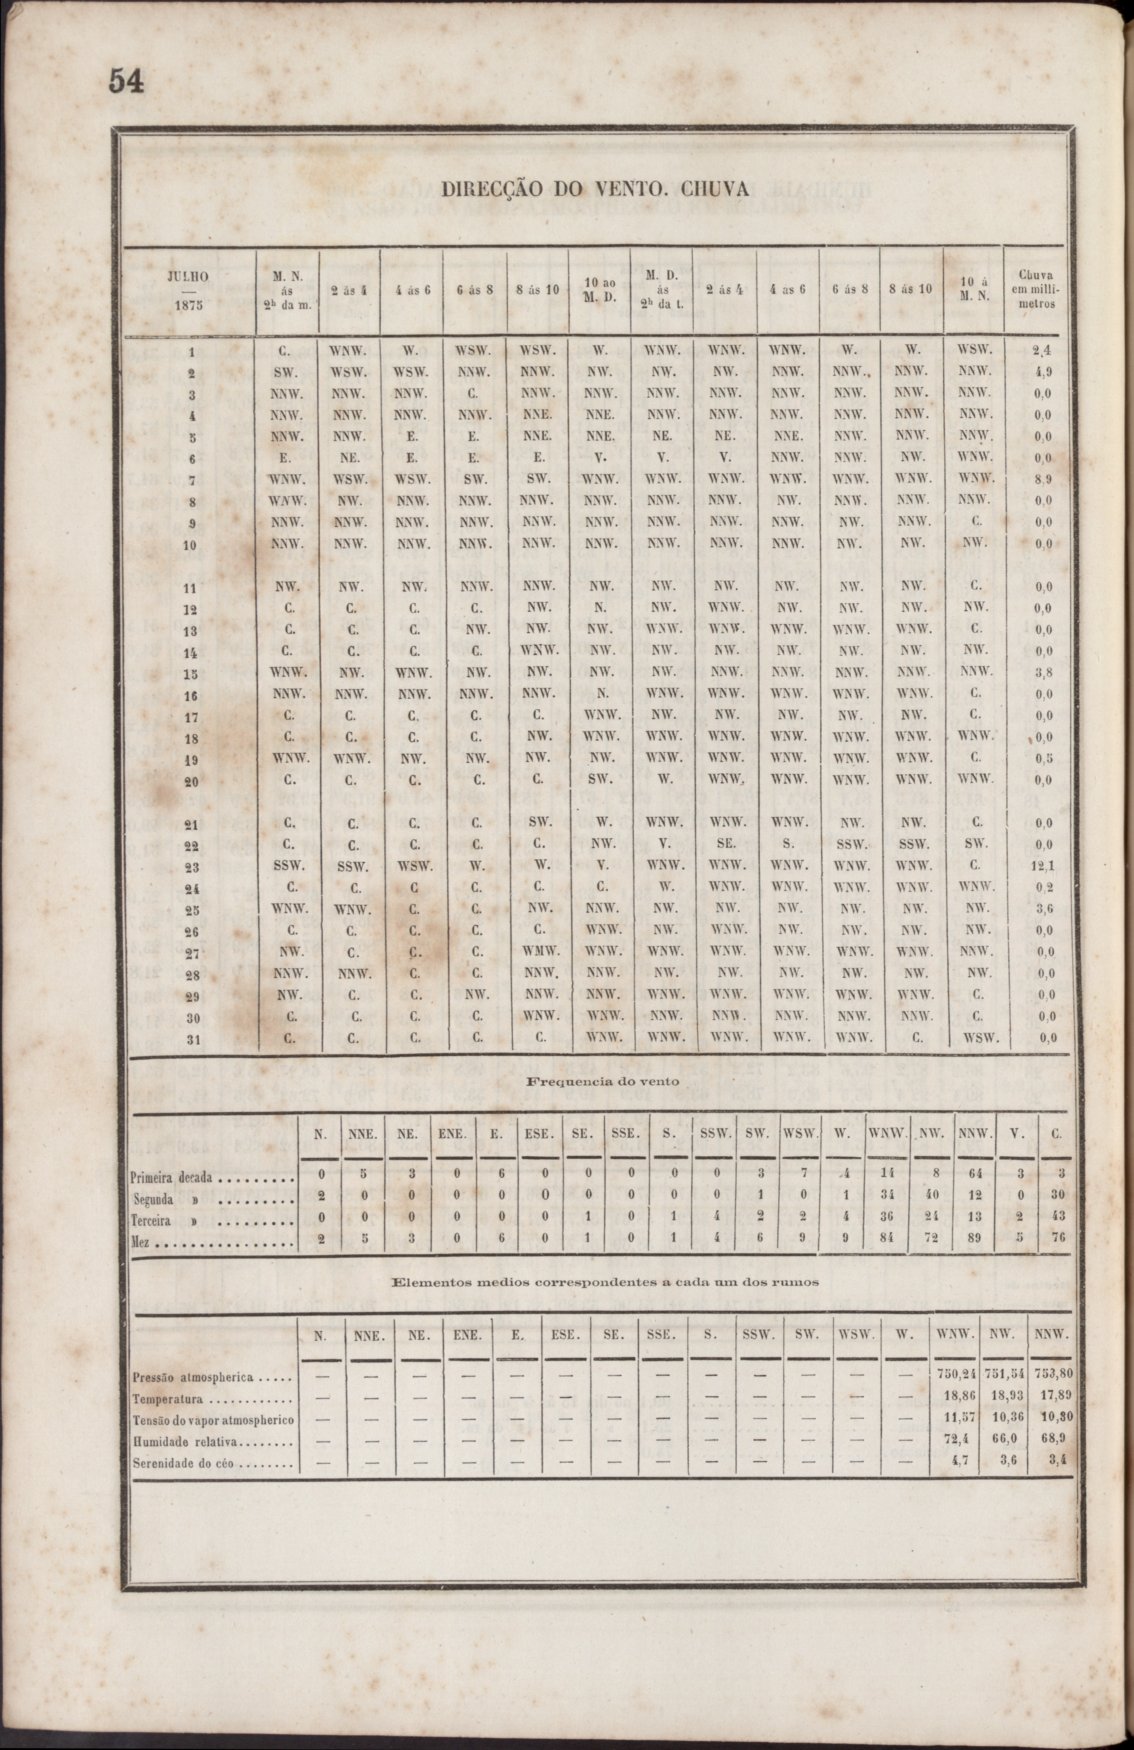 54
DIRECÇÃO DO VENTO. CHUVA
JULHO — 1875 M. N. ás 2h da m. 2 ás 4 4 ás 6 6 ás 8 8 ás 10 10 ao M. D. M. D. ás 2h da t. 2 ás 4 4 as 6 6 ás 8 8 ás 10 10 á M. N. Chuva em milli-metros
1 C. WNW. W. WSW. WSW. W. WNW. WNW. WNW. W. W. WSW. 2,4
2 SW. WSW. WSW. NNW. NNW. NW. NW. NW. NNW. NNW. NNW. NNW. 4,9
3 NNW. NNW. NNW. C. NNW. NNW. NNW. NNW. NNW. NNW. NNW. NNW. 0,0
4 NNW. NNW. NNW. NNW. NNE. NNE. NNW. NNW. NNW. NNW. NNW. NNW. 0,0
5 NNW. NNW. E. E. NNE. NNE. NE. NE. NNE. NNW. NNW. NNW. 0,0
6 E. NE. E. E. E. V. V. V. NNW. NNW. NW. WNW. 0,0
7 WNW. WSW. WSW. SW. SW. WNW. WNW. WNW. WNW. WNW. WNW. WNW. 8,9
8 WNW. NW. NNW. NNW. NNW. NNW. NNW. NNW. NW. NNW. NNW. NNW. 0,0
9 NNW. NNW. NNW. NNW. NNW. NNW. NNW. NNW. NNW. NW. NNW. C. 0,0
10 NNW. NNW. NNW. NNW. NNW. NNW. NNW. NNW. NNW. NW. NW. NW. 0,0
11 NW. NW. NW. NNW. NNW. NW. NW. NW. NW. NW. NW. C. 0,0
12 C. C. C. C. NW. N. NW. WNW. NW. NW. NW. NW. 0,0
13 C. C. C. NW. NW. NW. WNW. WNW. WNW. WNW. WNW. C. 0,0
14 C. C. C. C. WNW. NW. NW. NW. NW. NW. NW. NW. 0,0
15 WNW. NW. WNW. NW. NW. NW. NW. NNW. NNW. NNW. NNW. NNW. 3,8
16 NNW. NNW. NNW. NNW. NNW. N. WNW. WNW. WNW. WNW. WNW. C. 0,0
17 C. C. C. C. C. WNW. NW. NW. NW. NW. NW. C. 0,0
18 C. C. C. C. NW. WNW. WNW. WNW. WNW. WNW. WNW. WNW. 0,0
19 WNW. WNW. NW. NW. NW. NW. WNW. WNW. WNW. WNW. WNW. C. 0,5
20 C. C. C. C. C. SW. W. WNW. WNW. WNW. WNW. WNW. 0,0
21 C. C. C. C. SW. W. WNW. WNW. WNW. NW. NW. C. 0,0
22 C. C. C. C. C. NW. V. SE. S. SSW. SSW. SW. 0,0
23 SSW. SSW. WSW. W. W. V. WNW. WNW. WNW. WNW. WNW. C. 12,1
24 C. C. C C. C. C. W. WNW. WNW. WNW. WNW. WNW. 0,2
25 WNW. WNW. C. C. NW. NNW. NW. NW. NW. NW. NW. NW. 3,6
26 C. C. C. C. C. WNW. NW. WNW. NW. NW. NW. NW. 0,0
27 NW. C. C. C. WMW. WNW. WNW. WNW. WNW. WNW. WNW. NNW. 0,0
28 NNW. NNW. C. C. NNW. NNW. NW. NW. NW. NW. NW. NW. 0,0
29 NW. C. C. NW. NNW. NNW. WNW. WNW. WNW. WNW. WNW. C. 0,0
30 C. C. C. C. WNW. WNW. NNW. NNW. NNW. NNW. NNW. C. 0,0
31 C. C. C. C. C. WNW. WNW. WNW. WNW. WNW. C. WSW. 0,0
Frequencia do vento
N. NNE. NE. ENE. E. ESE. SE. SSE. S. SSW. SW. WSW. W. WNW. NW. NNW. V. C.
Primeira decada ......... 0 5 3 0 6 0 0 0 0 0 3 7 4 14 8 64 3 3
Segunda » ......... 2 0 0 0 0 0 0 0 0 0 1 0 1 34 40 12 0 30
Terceira » ......... 0 0 0 0 0 0 1 0 1 4 2 2 4 36 24 13 2 43
Mez ................ 2 5 3 0 6 0 1 0 1 4 6 9 9 84 72 89 5 76
Elementos medios correspondentes a cada um dos rumos
N. NNE. NE. ENE. E. ESE. SE. SSE. S. SSW. SW. WSW. W. WNW. NW. NNW.
Pressão atmospherica ..... — — — — — — — — — — — — — 750,24 751,54 753,80
Temperatura ............ — — — — — — — — — — — — — 18,86 18,93 17,89
Tensão do vapor atmospherico — — — — — — — — — — — — — 11,57 10,36 10,30
Humidade relativa........ — — — — — — — — — — — — — 72,4 66,0 68,9
Serenidade do céo ........ — — — — — — — — — — — — — 4,7 3,6 3,4